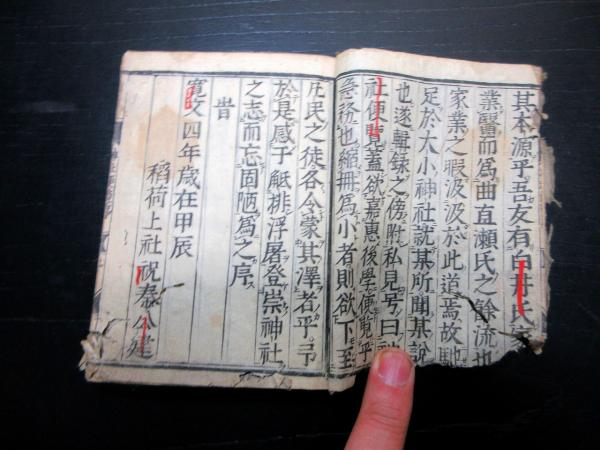 其本源乎吾友有白井氏家
業醫而爲曲直瀬氏之餘流也
家業之暇汲汲於此道焉故馳
足於大小神社就其所聞其說
也遂輯録之傍附私見号曰
社便覽蓋欲嘉惠後學使覽乎
急務也縮冊爲小者則欲下至
凡民之徒各令蒙其澤者乎
於是感予觝排浮屠登崇神社
之志而忘固陋爲之序
旹
寛文四年歳在甲辰
稻荷上社祝秦公建